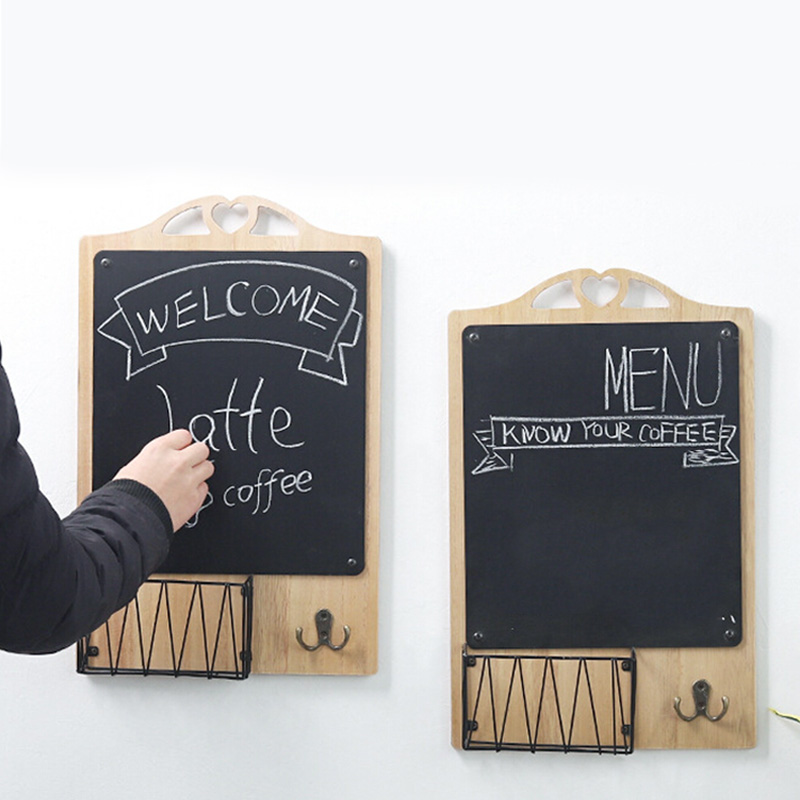 WELCOME
Latte
coffee
MENU
KNOW YOUR COFFEE